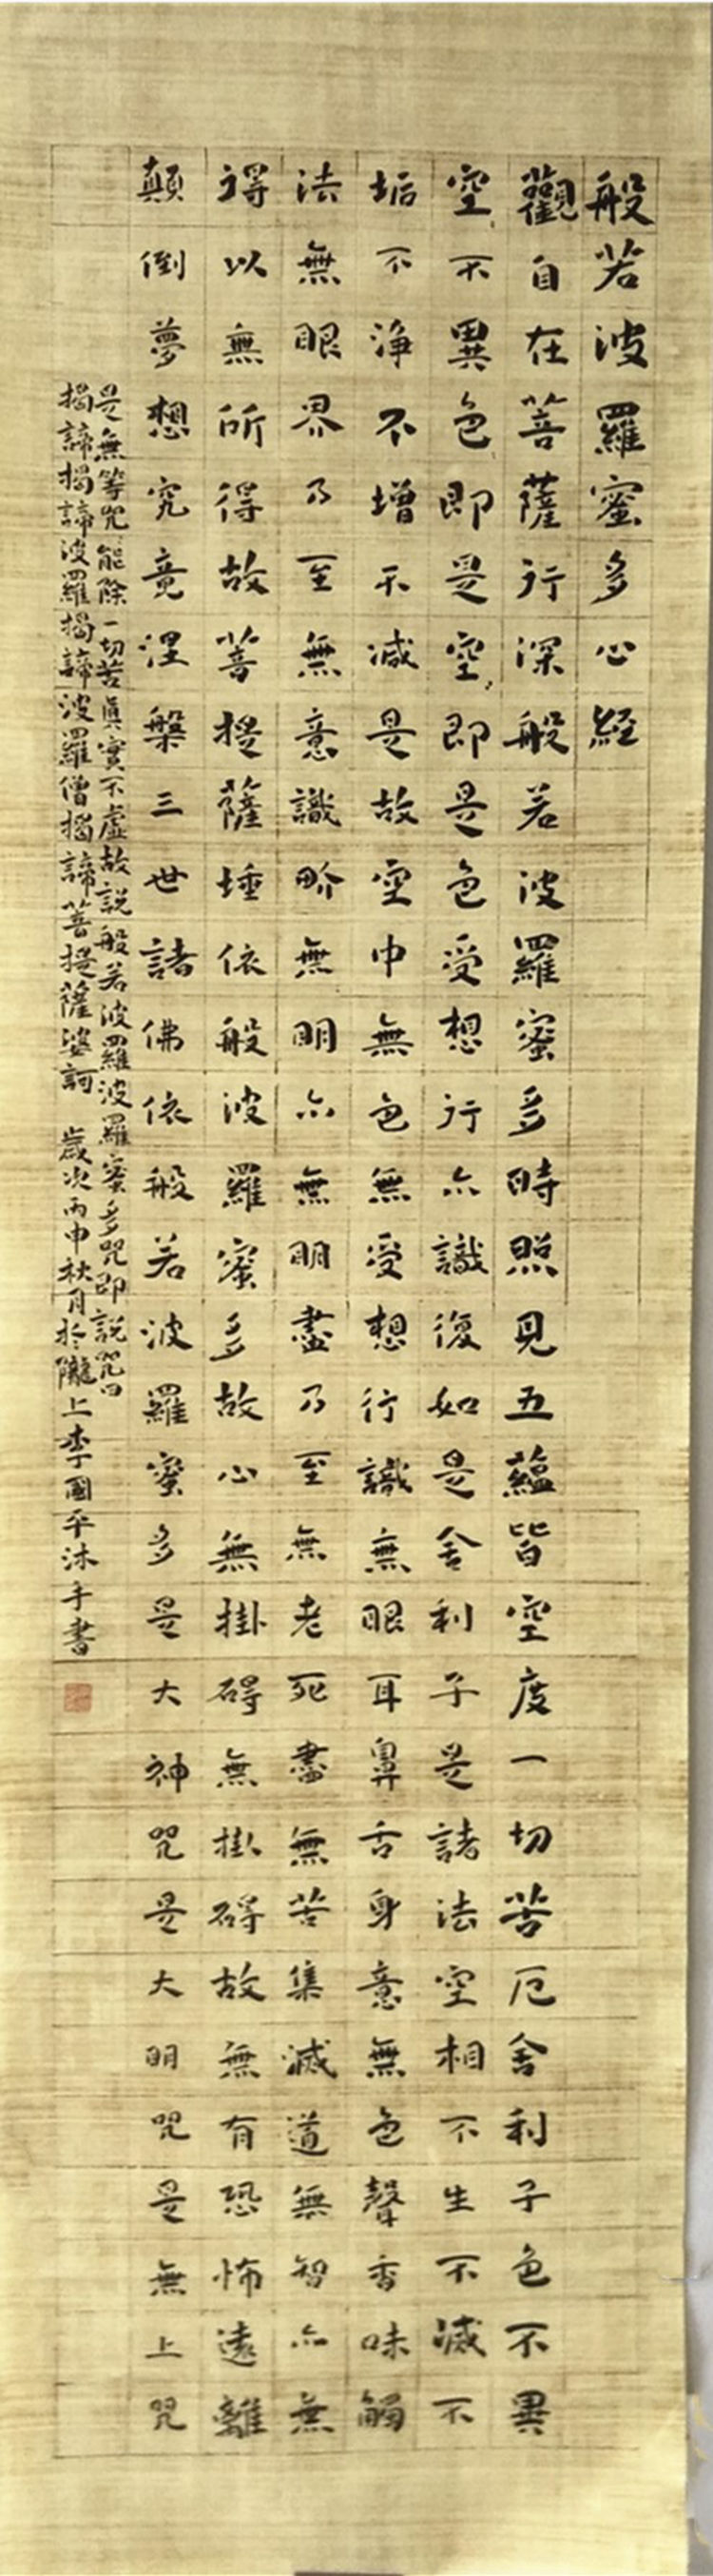 般若波羅蜜多心経
觀自在菩薩行深般若波羅蜜多時照見五蘊皆空度一切苦厄舍利子色不異
空不異色即是空即是色受想行亦識復如是舍利子是諸法空相不生不滅不
垢不净不增不减是故空中無色無受想行識無眼耳鼻舌身意無色聲香味觸
法無眼界乃至無意識界無明亦無明盡乃至無老死盡無苦集滅道無智亦無
得以無所得故菩提薩埵依般波羅蜜多故心無掛碍無掛碍故無有恐怖遠離
顛倒夢想究竟涅槃三世諸佛依般若波羅蜜多是大神咒是大明咒是無上咒
是無等咒能除一切苦真實不虛故説般若波羅波羅蜜多咒即説咒曰
揭諦揭諦波羅揭諦波羅僧揭諦菩提薩婆訶 歲次丙申秋月於隴上李國平沐手書